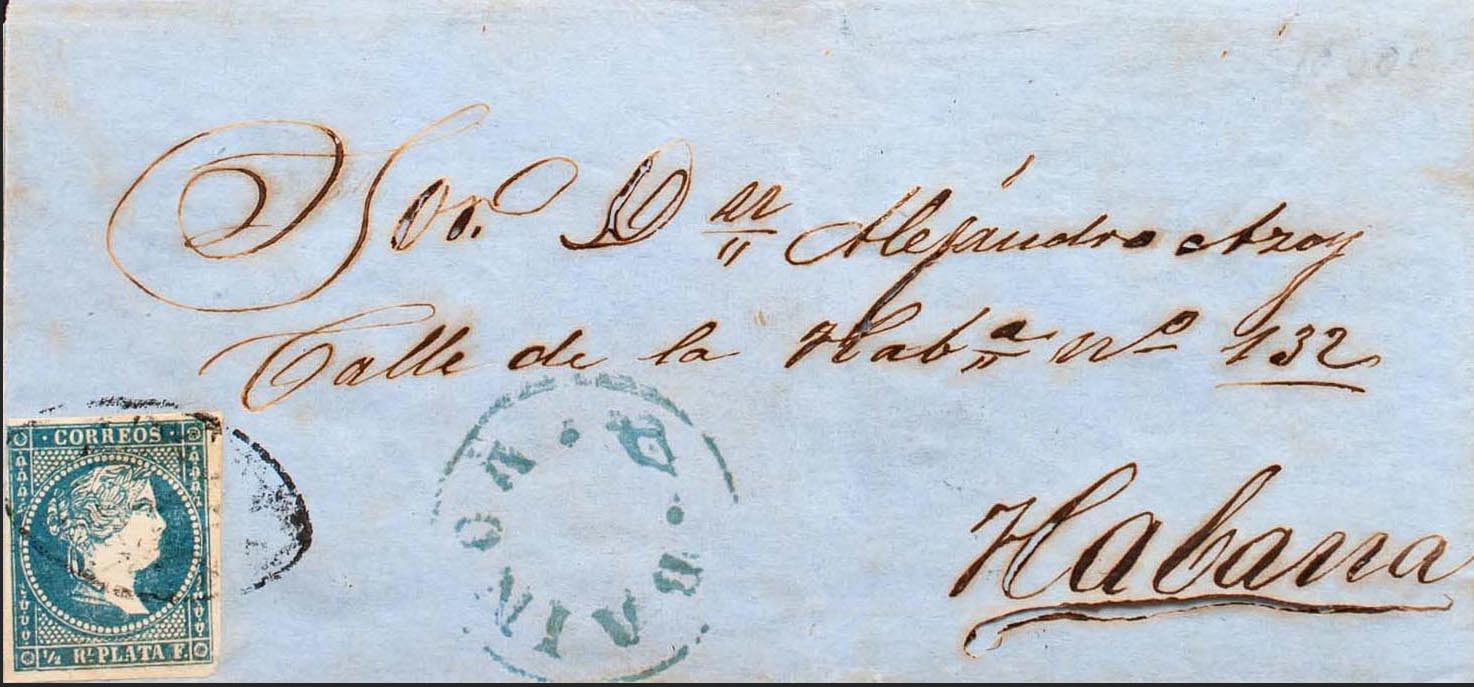 Sor. Dn Alejandro Azoy
Calle de la Haba No 132
Habana
CORREOS
½ Rl. PLATA F.